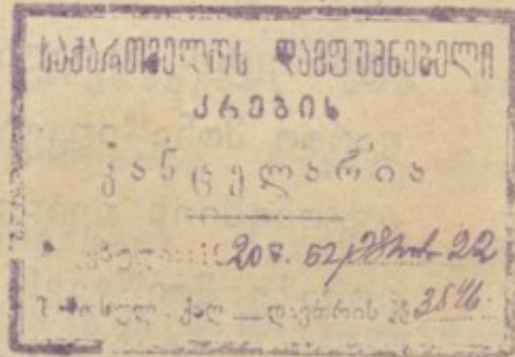 საქართველოს დამფუძნებელი
კრების
კანცელარია
მიღებულია 1920 წ. 22
შემოსულ. ქაღ. დავთრის № 3546.